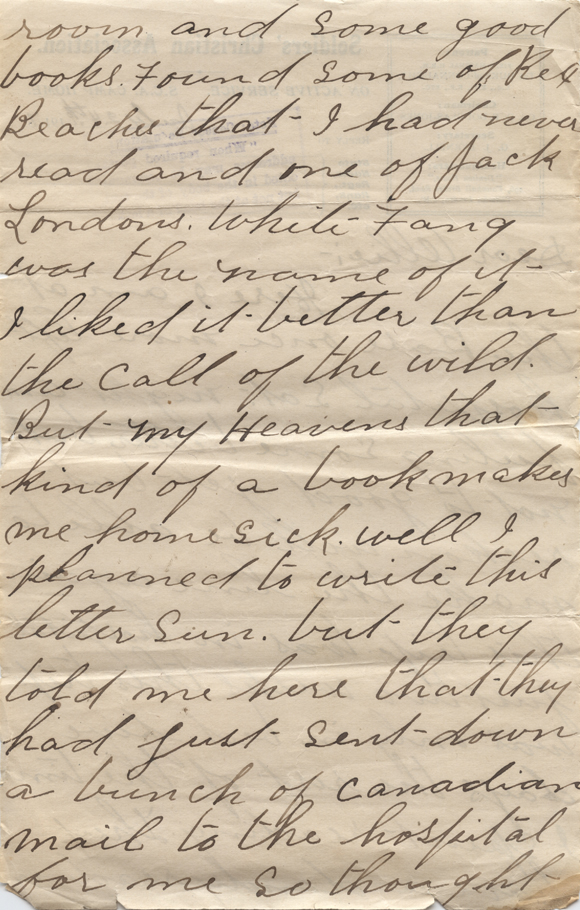 room and some good
books. Found some of Rex
Beaches that I had never
read and one of Jack
Londons. White Fang
was the name of it
I liked it better than
the Call of the wild.
But my Heavens that
kind of a book makes
me home sick. well I
planned to write this
letter Sun. but they
told me here that they
had just sent down
a bunch of Canadian
mail to the hospital
for me so thought